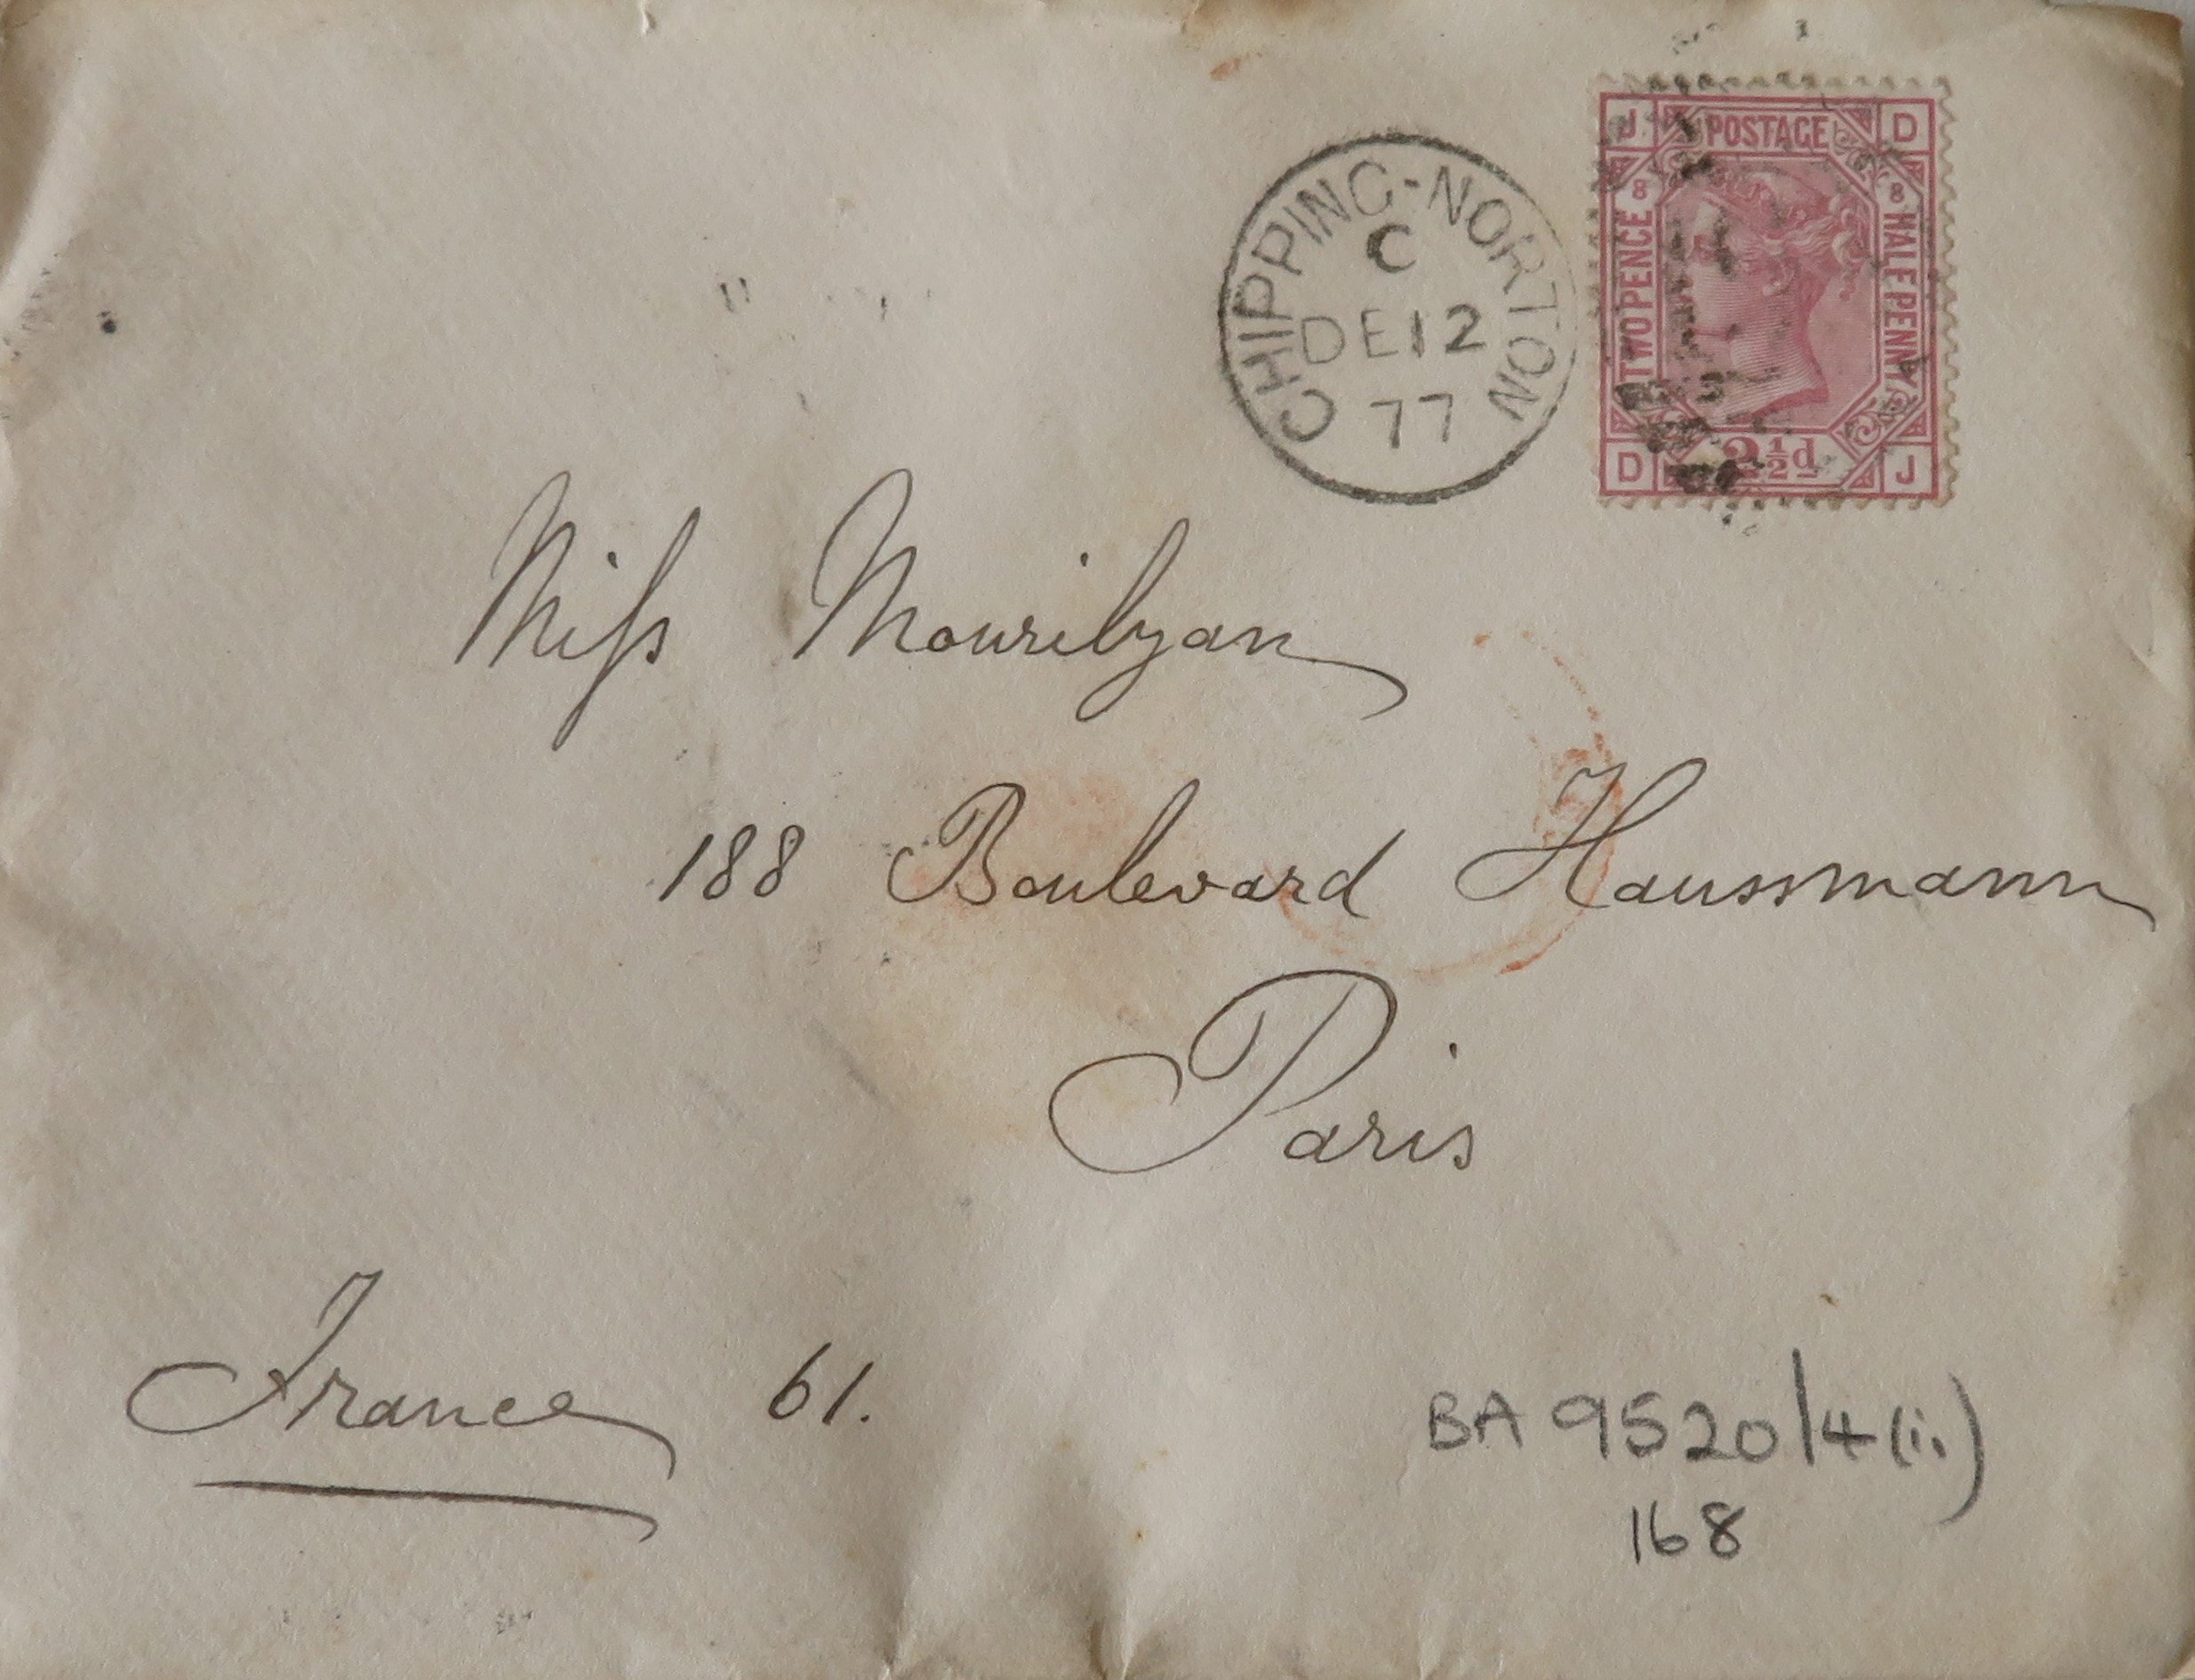 CHIPPING-NORTON
C
DE 12
77
J POSTAGE D
8 8
TWO PENCE
HALF PENNY
D 2½d J
Miss Mourilyan
188 Boulevard Haussmann
Paris
France 61.
BA 9520/4(ii)
168